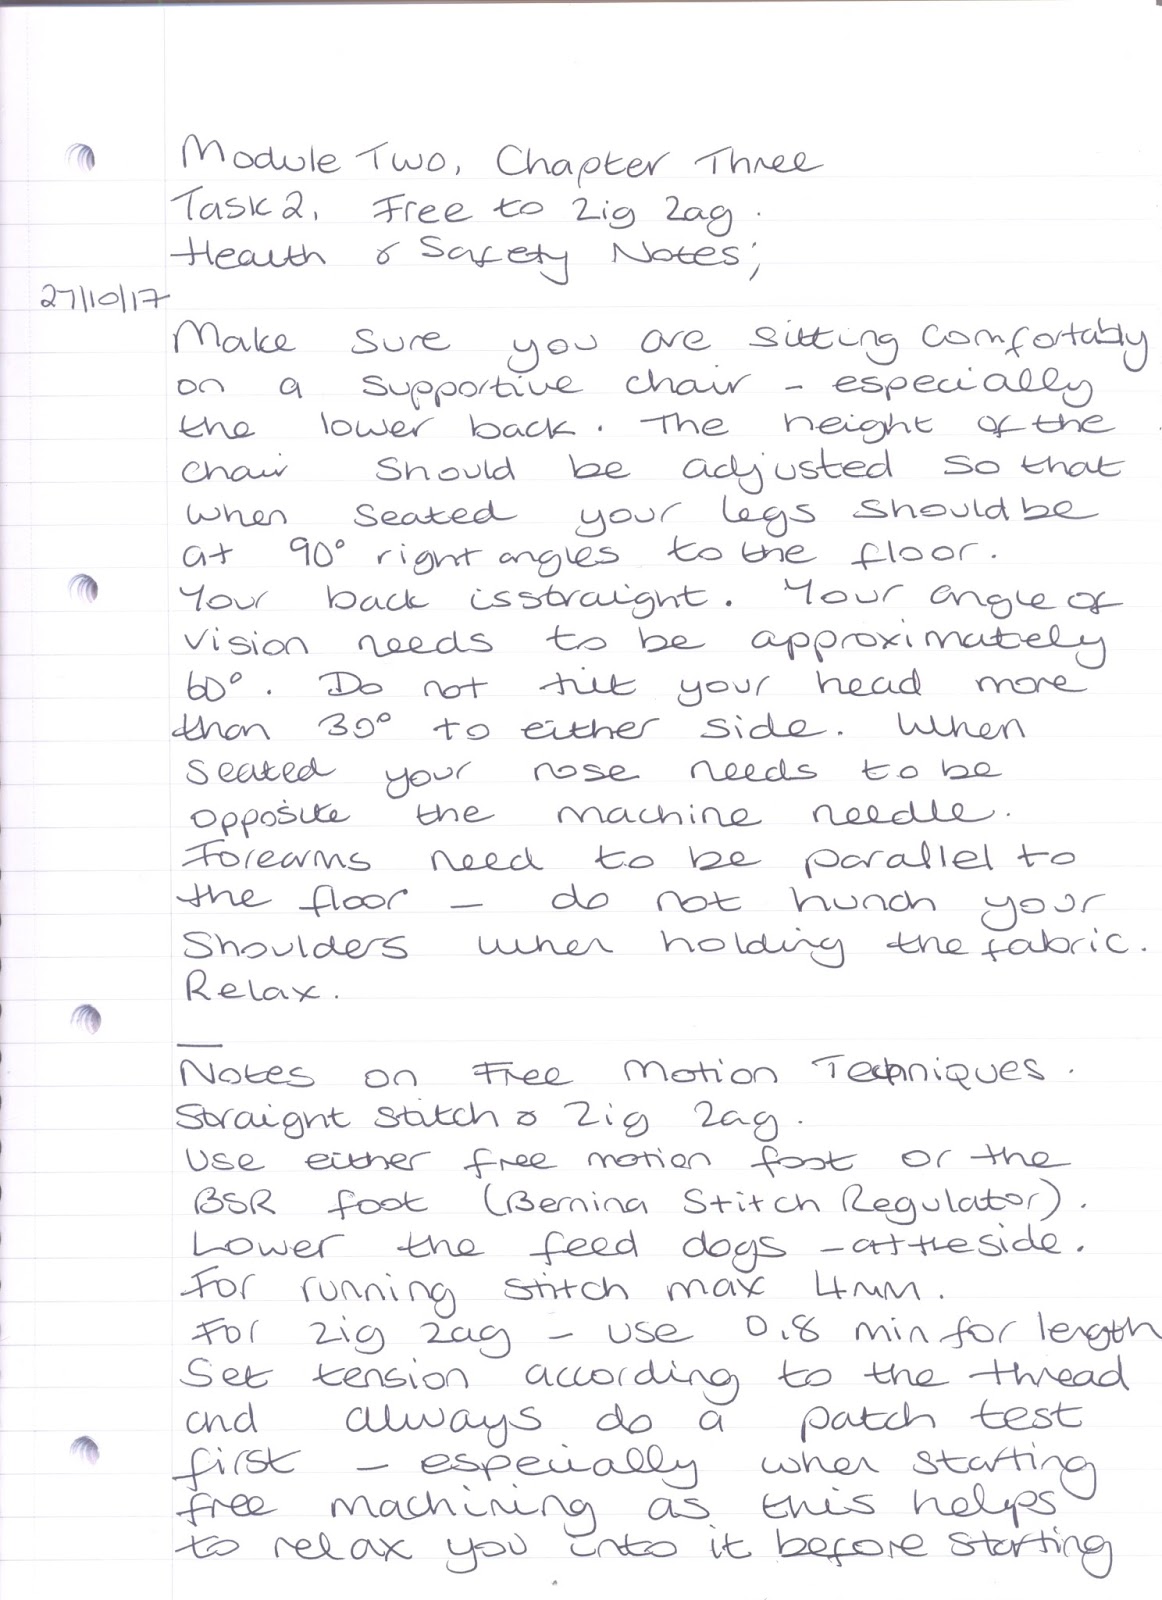 Module Two, Chapter Three
Task 2. Free to Zig Zag.
Health & Safety Notes;
27/10/17
Make sure you are sitting comfortably
on a supportive chair - especially
the lower back. The height of the
chair should be adjusted so that
when seated your legs should be
at 90° right angles to the floor.
Your back is straight. Your angle of
vision needs to be approximately
60°. Do not tilt your head more
than 30° to either side. When
seated your nose needs to be
opposite the machine needle.
Forearms need to be parallel to
the floor - do not hunch your
shoulders when holding the fabric.
Relax.
Notes on Free Motion Techniques.
Straight stitch & Zig Zag.
Use either free motion foot or the
BSR foot (Bernina Stitch Regulator).
Lower the feed dogs - at the side.
For running stitch max 4mm.
For zig zag - use 0.8 min for length
Set tension according to the thread
and always do a patch test
first - especially when starting
free machining as this helps
to relax you into it before starting